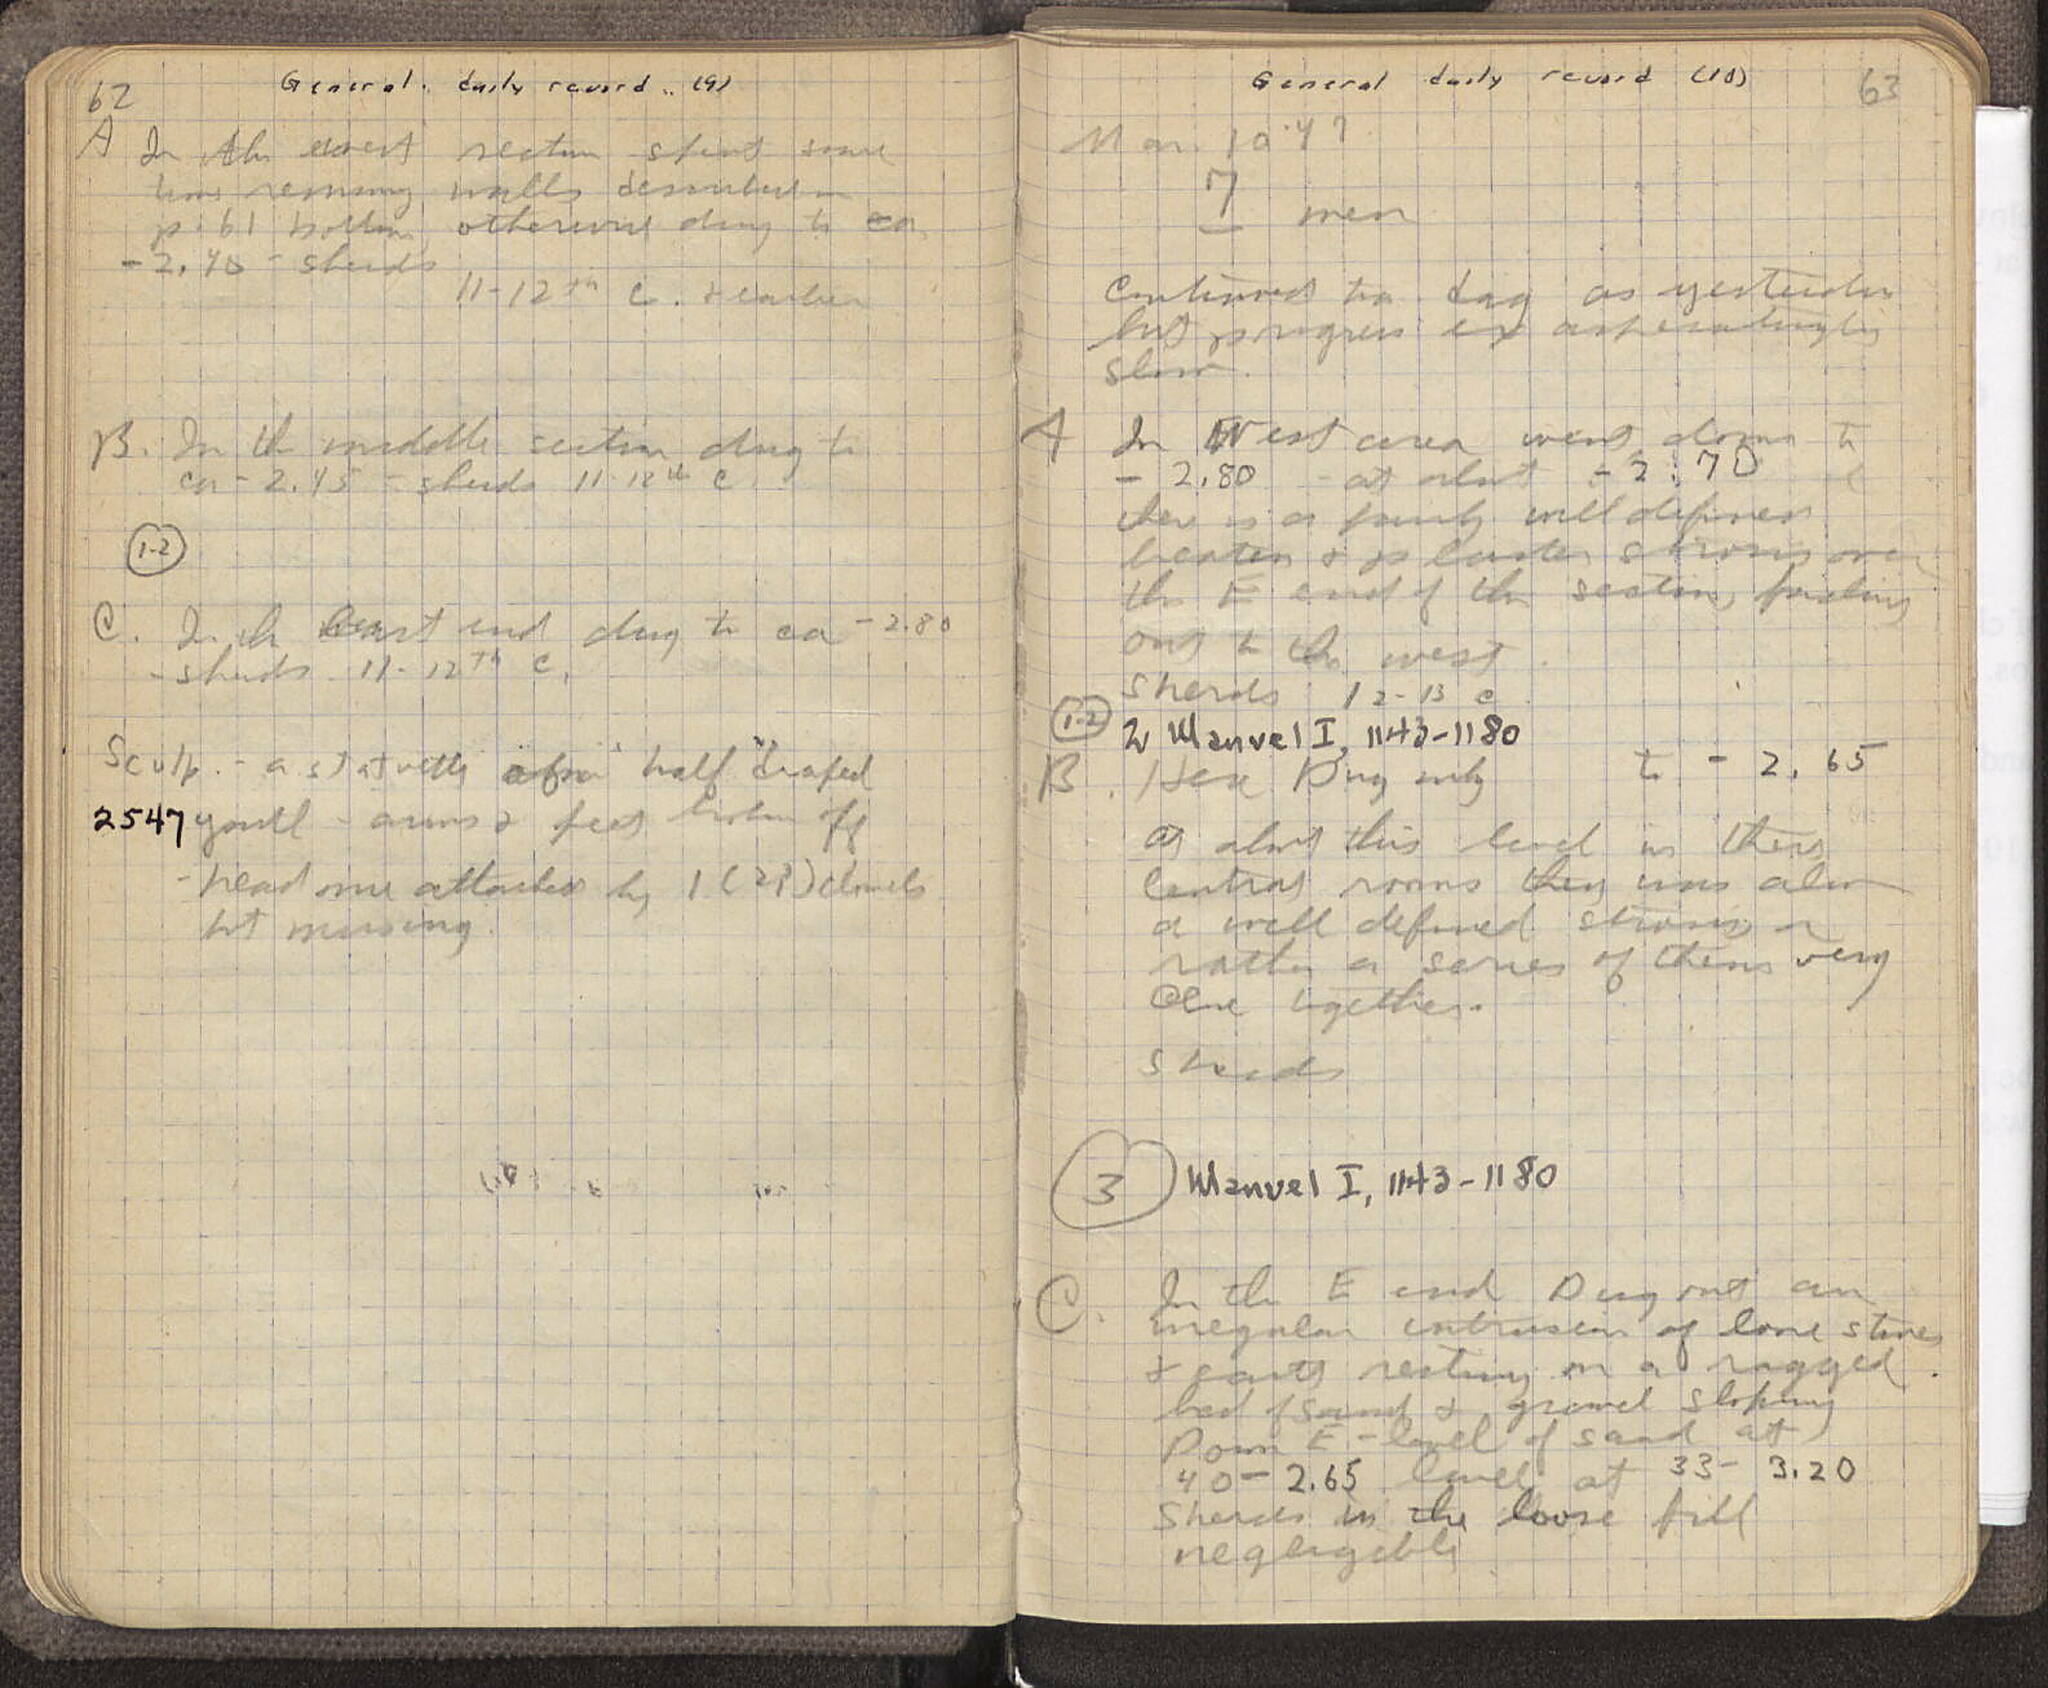 62
General daily record (9)
A In the west section spent some
time removing walls described on
p. 61 bottom, otherwise dug to ca.
- 2.40 - sherds
11-12th c. & earlier
B. In the middle section dug to
ca - 2.45 - sherds 11-12th c.
1-2
C. In the East end dug to ca - 2.80
- sherds 11-12th c.
Sculp. - a statuette of a "half" draped
2547 youth - arms & feet broken off
- head once attached by 1 (2?) dowels
but missing.
63
General daily record (10)
Mar. 10 '47
7 men
Continued to dig as yesterday
but progress exasperatingly
slow.
A In West area went down to
- 2.80 - at about - 2.70
there is a fairly well defined
beaten & plaster strosis over
the E end of the section, fading
out to the west.
Sherds 12-13 c.
1-2 2 Manuel I, 1143-1180
B. Here Dug only to - 2.65
at about this level in these
Central rooms there was also
a well defined strosis or
rather a series of them very
close together.
Sherds
3 Manuel I, 1143-1180
C. In the E end Dug out an
irregular intrusion of loose stones
& earth resting on a ragged
bed of sand & gravel sloping
Down E - level of sand at
40 - 2.65 level at 33 - 3.20
Sherds in the loose fill
negligible